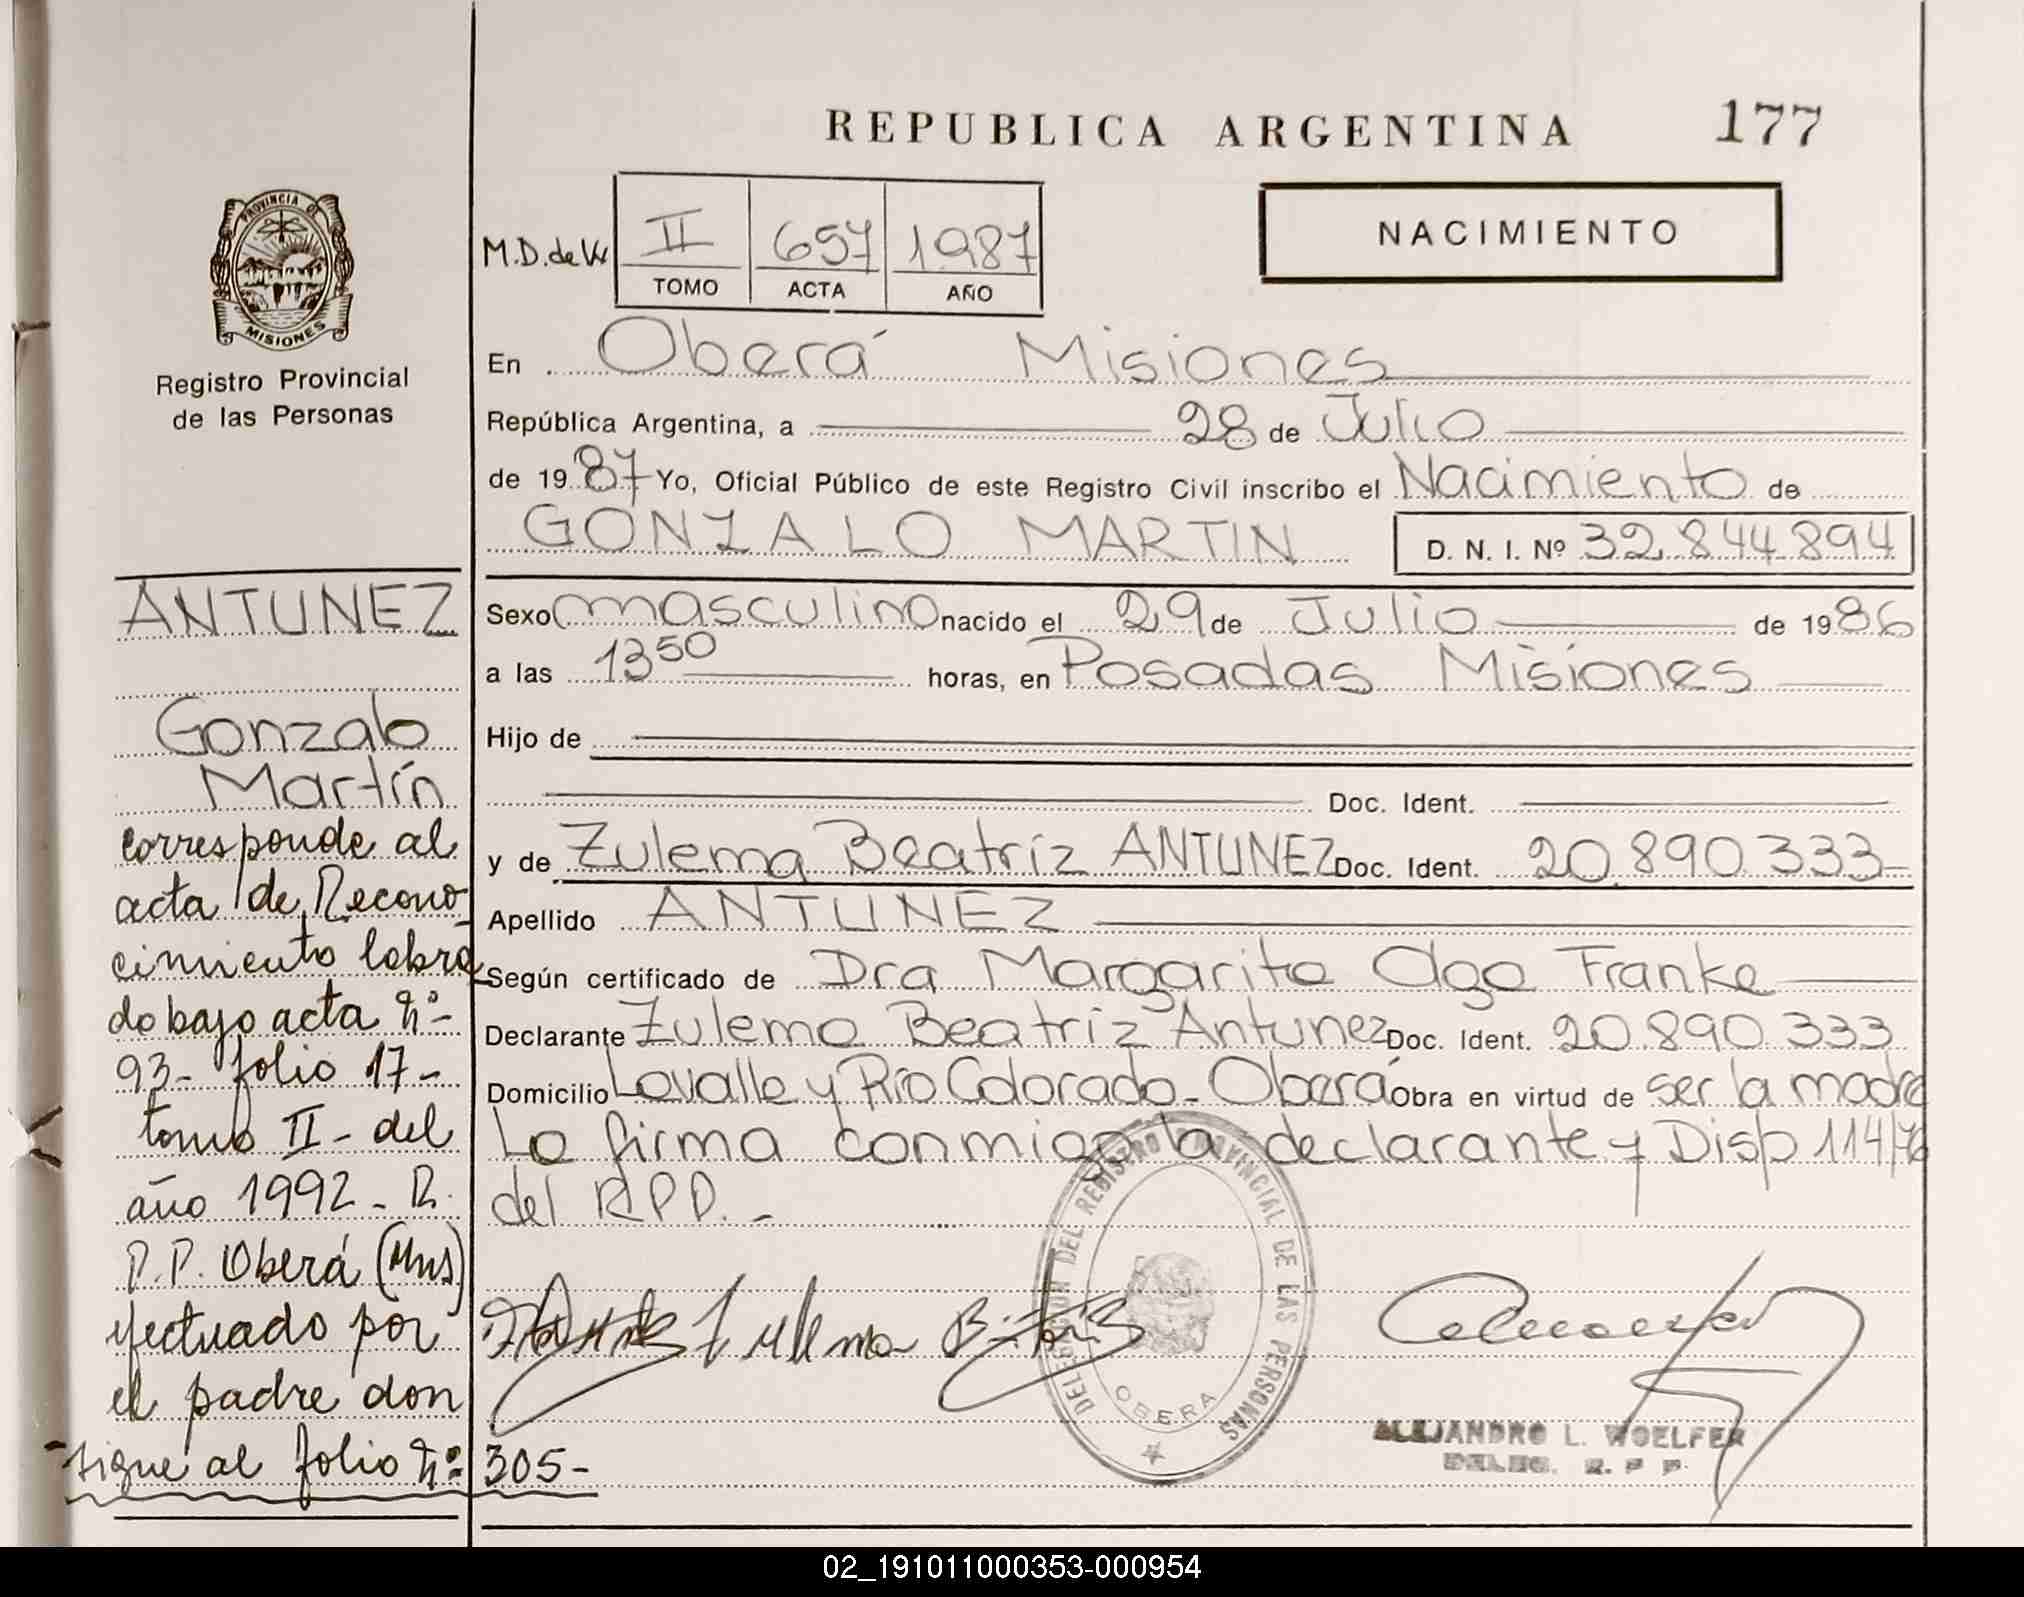 REPUBLICA ARGENTINA 177
PROVINCIA DE
MISIONES
Registro Provincial
de las Personas
M.D. de
II 657 1987
TOMO ACTA AÑO
NACIMIENTO
En Oberá Misiones
República Argentina, a 28 de Julio
de 1987 Yo, Oficial Público de este Registro Civil inscribo el Nacimiento de
GONZALO MARTIN D. N. I. Nº 32.844.894
ANTUNEZ
Gonzalo
Martín
corresponde al
acta de Recono
cimiento labra
do bajo acta nº-
93- folio 17-
tomo II- del
año 1992- R.
P.P. Oberá (Mns)
efectuado por
el padre don
sigue al folio nº 305-
Sexo masculino nacido el 29 de Julio de 1986
a las 13 50 horas, en Posadas Misiones
Hijo de
Doc. Ident.
y de Zulema Beatríz ANTUNEZ Doc. Ident. 20.890.333-
Apellido ANTUNEZ
Según certificado de Dra Margarita Olga Franke
Declarante Zulema Beatriz Antunez Doc. Ident. 20.890.333
Domicilio Lavalle y Río Colorado - Oberá Obra en virtud de ser la madre
Lo firma conmigo la declarante y Disp 114/76
del R.P.P. -
Zulema
DELEGACION DEL REGISTRO PROVINCIAL DE LAS PERSONAS
OBERA
ALEJANDRO L. WOELFER
DELEG. R. P P.
02_191011000353-000954